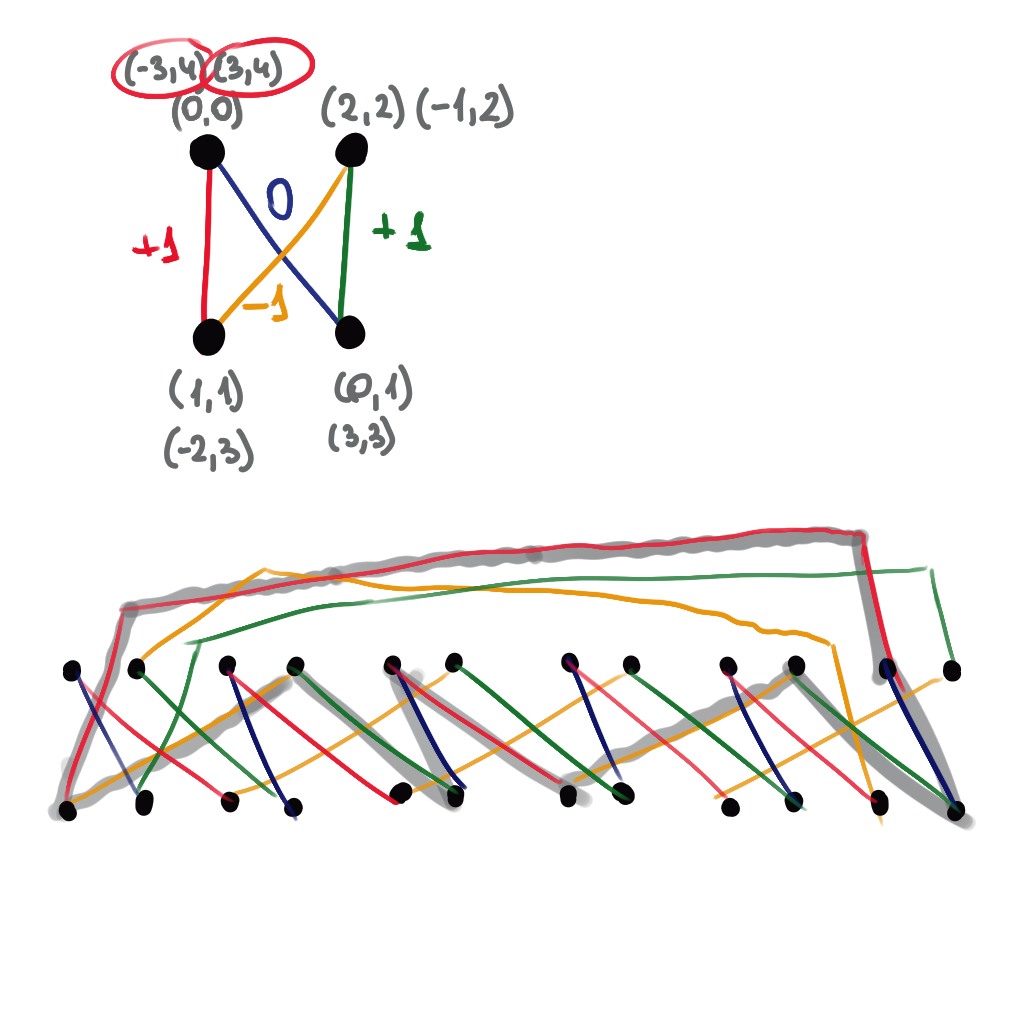 (-3,4) (3,4)
(0,0) (2,2) (-1,2)
0
+1 +1
-1
(1,1) (0,1)
(-2,3) (3,3)